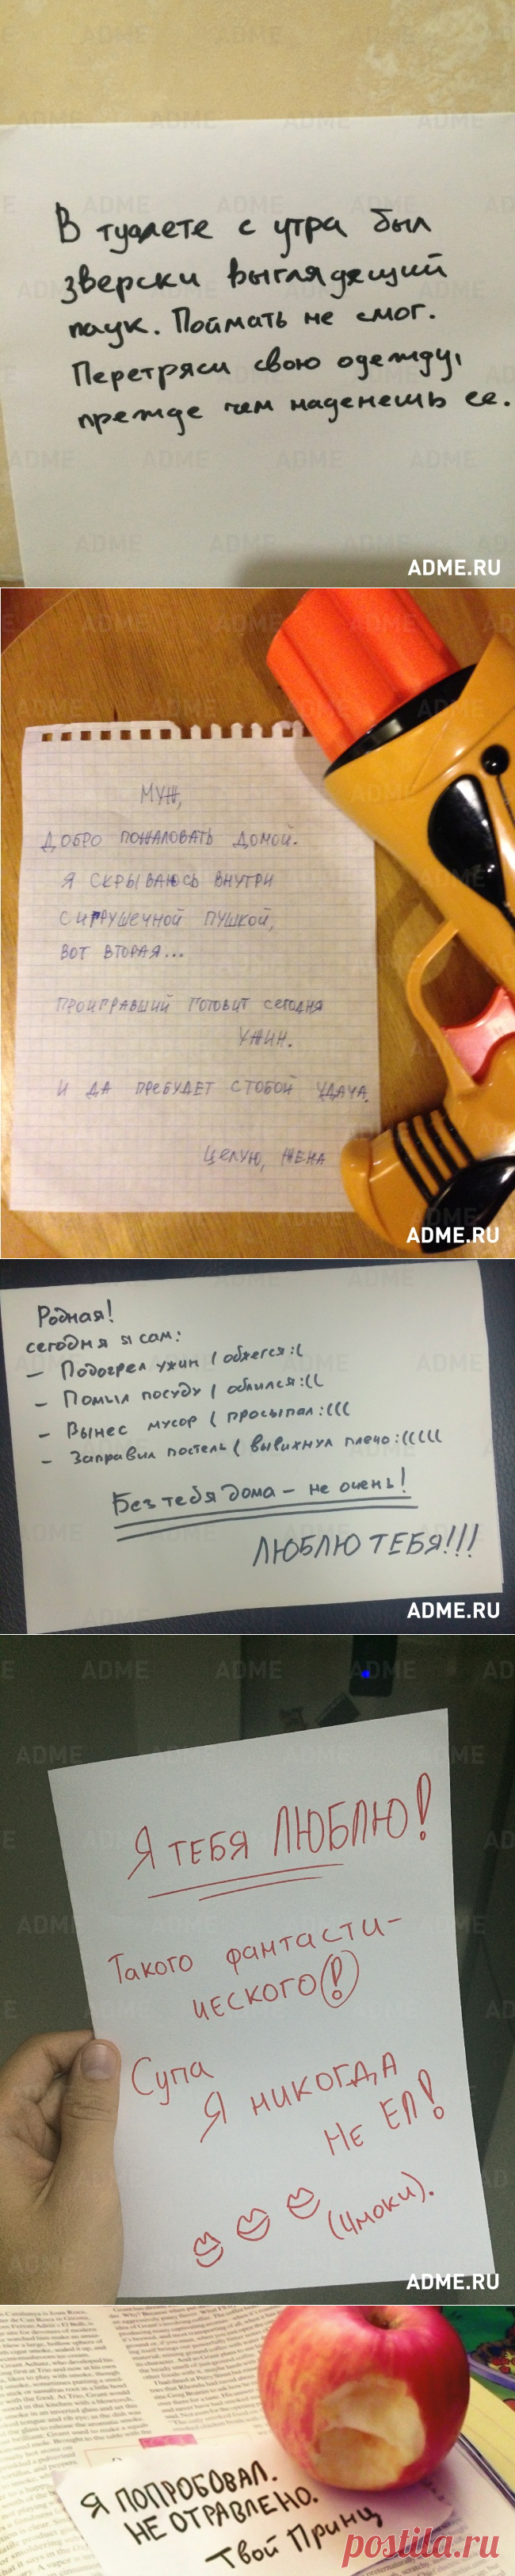 В туалете с утра был
зверски выглядещий
паук. Поймать не смог.
Перетряси свою одежду,
прежде чем наденешь ее.
ADME.RU
МУЖ,
ДОБРО ПОЖАЛОВАТЬ ДОМОЙ.
Я СКРЫВАЮСЬ ВНУТРИ
С ИГРУШЕЧНОЙ ПУШКОЙ,
ВОТ ВТОРАЯ...
ПРОИГРАВШИЙ ГОТОВИТ СЕГОДНЯ
УЖИН.
И ДА ПРЕБУДЕТ С ТОБОЙ УДАЧА.
ЦЕЛУЮ, ЖЕНА
ADME.RU
Родная!
сегодня я сам:
– Подогрел ужин (обжегся:(
– Помыл посуду (облился:((
– Вынес мусор (просыпал:(((
– Заправил постель (вывихнул плечо:(((((
Без тебя дома – не очень!
ЛЮБЛЮ ТЕБЯ!!!
ADME.RU
Я ТЕБЯ ЛЮБЛЮ!
Такого фантасти-
ческого!
Супа
Я НИКОГДА
НЕ ЕЛ!
(Чмоки).
ADME.RU
Я ПОПРОБОВАЛ.
НЕ ОТРАВЛЕНО.
Твой Принц
postila.ru